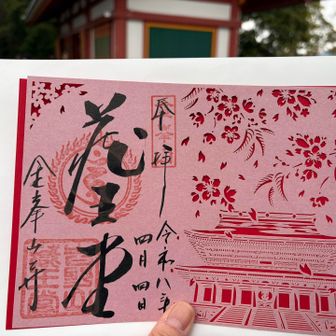 奉拝
令和八年
四月四日
蔵王堂
金峯山寺